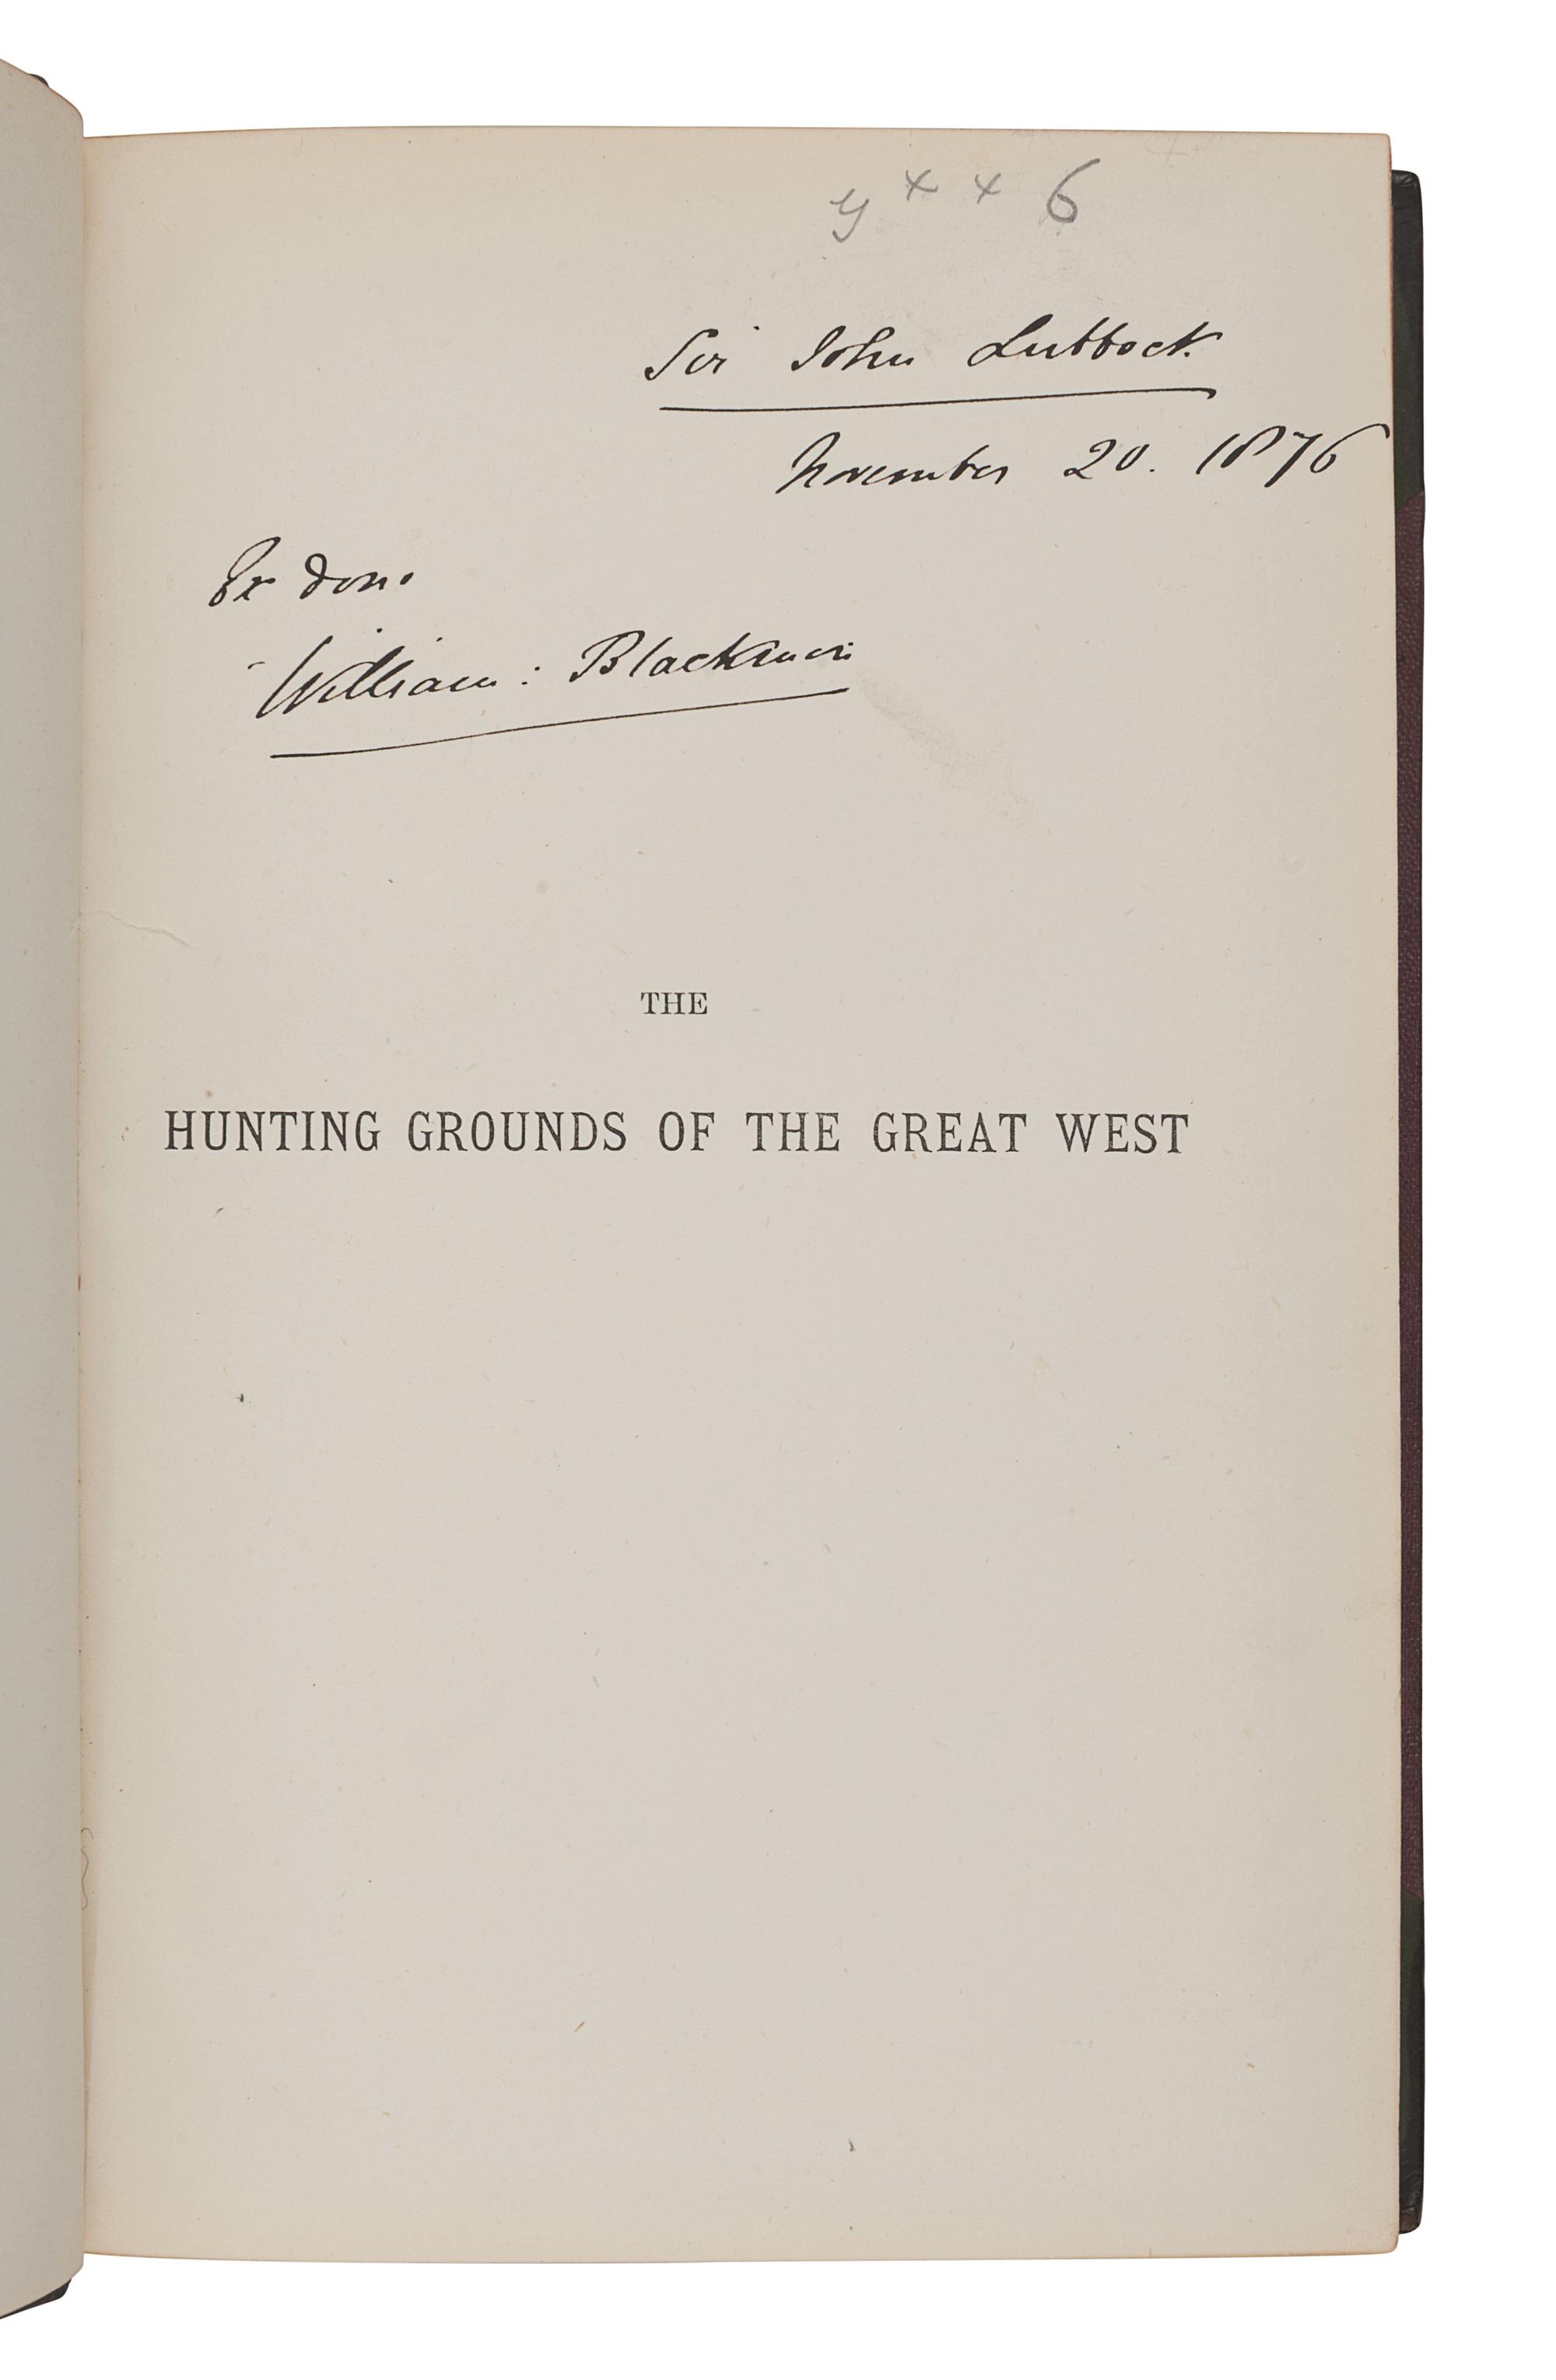 y x x 6
Sir John Lubbock
November 20. 1876
Ex dono
William: Blackmore
THE
HUNTING GROUNDS OF THE GREAT WEST